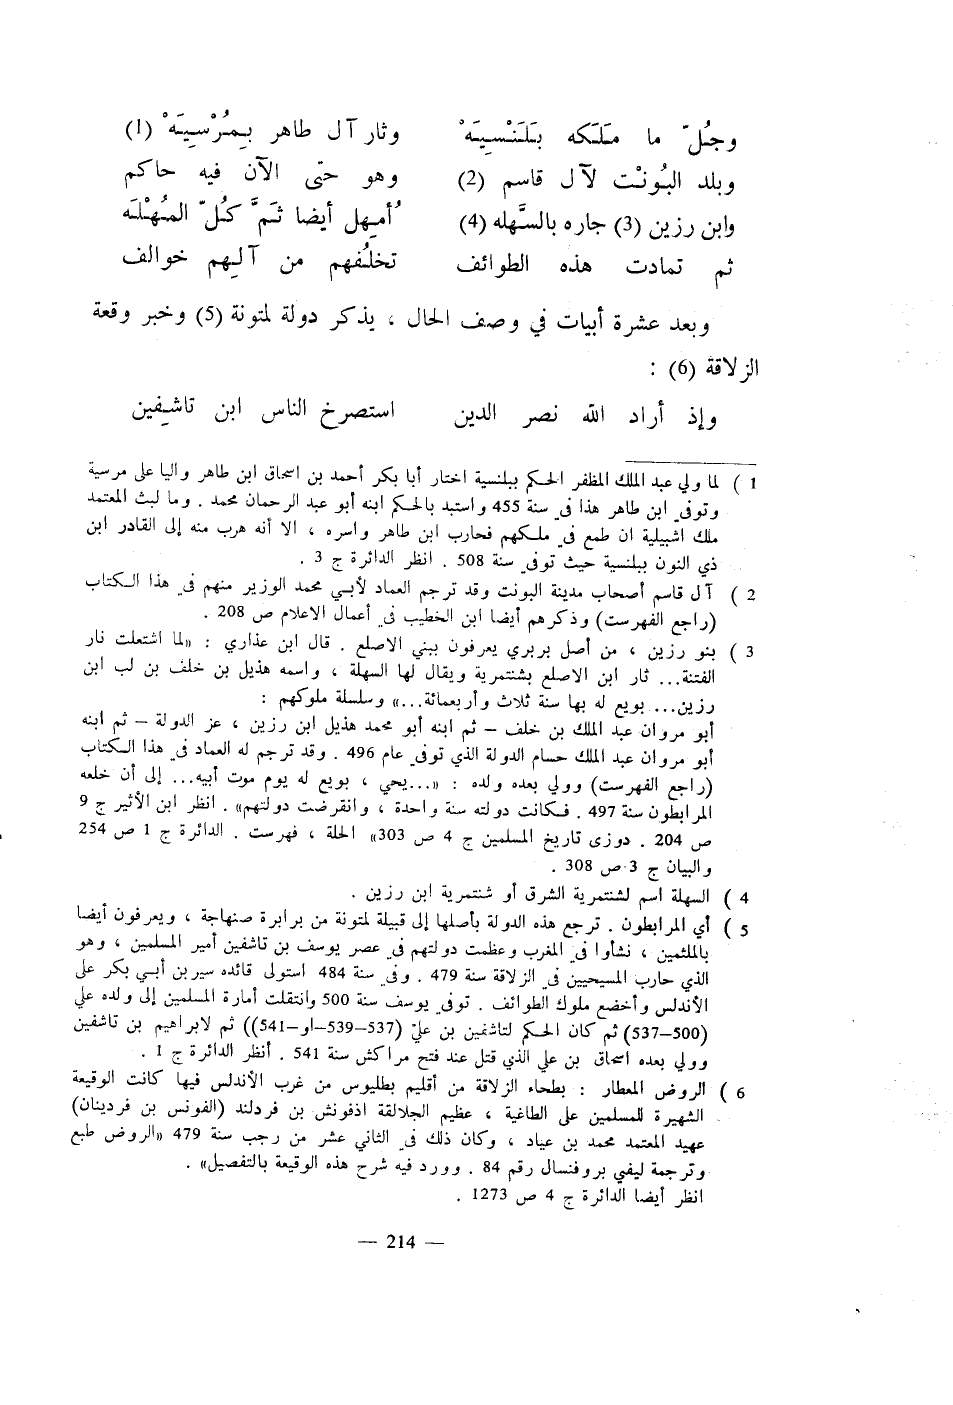 وجُلّ ما مَلَكه بَلَنْسِيَهْ وثار آل طاهر بِمُرْسِيَهْ (1)
وبلد البُونْت لآل قاسم (2) وهو حتى الآن فيه حاكم
وابن رزين (3) جاره بالسَّهله (4) أُمهِل أيضا ثَمَّ كُلّ المُهْلَه
ثم تمادت هذه الطوائف تخلُفهم من آلهم خوالف
وبعد عشرة أبيات في وصف الحال ، يذكر دولة لمتونة (5) وخبر وقعة
الزلاقة (6) :
وإذ أراد الله نصر الدين استصرخ الناس ابن تاشفين
1 ) لما ولي عبد الملك المظفر الحكم ببلنسية اختار أبا بكر أحمد بن اسحاق ابن طاهر واليا على مرسية
وتوفي ابن طاهر هذا في سنة 455 واستبد بالحكم ابنه أبو عبد الرحمان محمد . وما لبث المعتمد
ملك اشبيلية ان طمع في ملكهم فحارب ابن طاهر واسره ، الا أنه هرب منه إلى القادر ابن
ذي النون ببلنسية حيث توفي سنة 508 . انظر الدائرة ج 3 .
2 ) آل قاسم أصحاب مدينة البونت وقد ترجم العماد لأبي محمد الوزير منهم في هذا الكتاب
(راجع الفهرست) وذكرهم أيضا ابن الخطيب في أعمال الاعلام ص 208 .
3 ) بنو رزين ، من أصل بربري يعرفون ببني الاصلع . قال ابن عذاري : «لما اشتعلت نار
الفتنة... ثار ابن الاصلع بشنتمرية ويقال لها السهلة ، واسمه هذيل بن خلف بن لب ابن
رزين... بويع له بها سنة ثلاث وأربعمائة...» وسلسلة ملوكهم :
أبو مروان عبد الملك بن خلف – ثم ابنه أبو محمد هذيل ابن رزين ، عز الدولة – ثم ابنه
أبو مروان عبد الملك حسام الدولة الذي توفي عام 496 . وقد ترجم له العماد في هذا الكتاب
(راجع الفهرست) وولي بعده ولده : «...يحي ، بويع له يوم موت أبيه... إلى أن خلعه
المرابطون سنة 497 . فكانت دولته سنة واحدة ، وانقرضت دولتهم» . انظر ابن الأثير ج 9
ص 204 . دوزى تاريخ المسلمين ج 4 ص 303» الحلة ، فهرست . الدائرة ج 1 ص 254
والبيان ج 3 ص 308 .
4 ) السهلة اسم لشنتمرية الشرق أو شنتمرية ابن رزين .
5 ) أي المرابطون . ترجع هذه الدولة بأصلها إلى قبيلة لمتونة من برابرة صنهاجة ، ويعرفون أيضا
بالملثمين ، نشأوا في المغرب وعظمت دولتهم في عصر يوسف بن تاشفين أمير المسلمين ، وهو
الذي حارب المسيحيين في الزلاقة سنة 479 . وفي سنة 484 استولى قائده سير بن أبي بكر على
الأندلس وأخضع ملوك الطوائف . توفي يوسف سنة 500 وانتقلت أمارة المسلمين إلى ولده علي
(500–537) ثم كان الحكم لتاشفين بن عليّ (537–539–او–541)) ثم لابراهيم بن تاشفين
وولي بعده اسحاق بن علي الذي قتل عند فتح مراكش سنة 541 . أنظر الدائرة ج 1 .
6 ) الروض المعطار : بطحاء الزلاقة من أقليم بطليوس من غرب الأندلس فيها كانت الوقيعة
الشهيرة للمسلمين على الطاغية ، عظيم الجلالقة اذفونش بن فردلند (الفونس بن فردينان)
عهيد المعتمد محمد بن عياد ، وكان ذلك في الثاني عشر من رجب سنة 479 «الروض طبع
وترجمة ليفي بروفنسال رقم 84 . وورد فيه شرح هذه الوقيعة بالتفصيل» .
انظر أيضا الدائرة ج 4 ص 1273 .
— 214 —